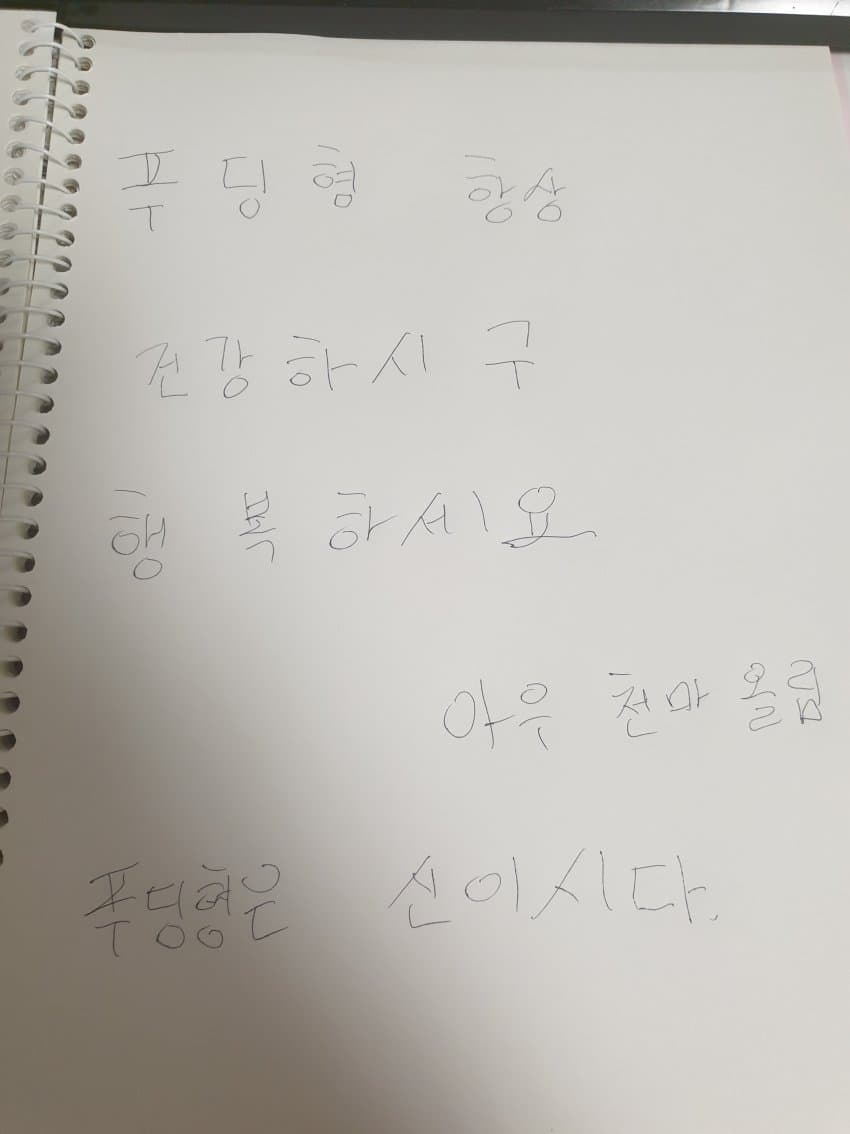 푸딩형 항상
건강하시구
행복하세요
아우 천마 올림
푸딩형은 신이시다.